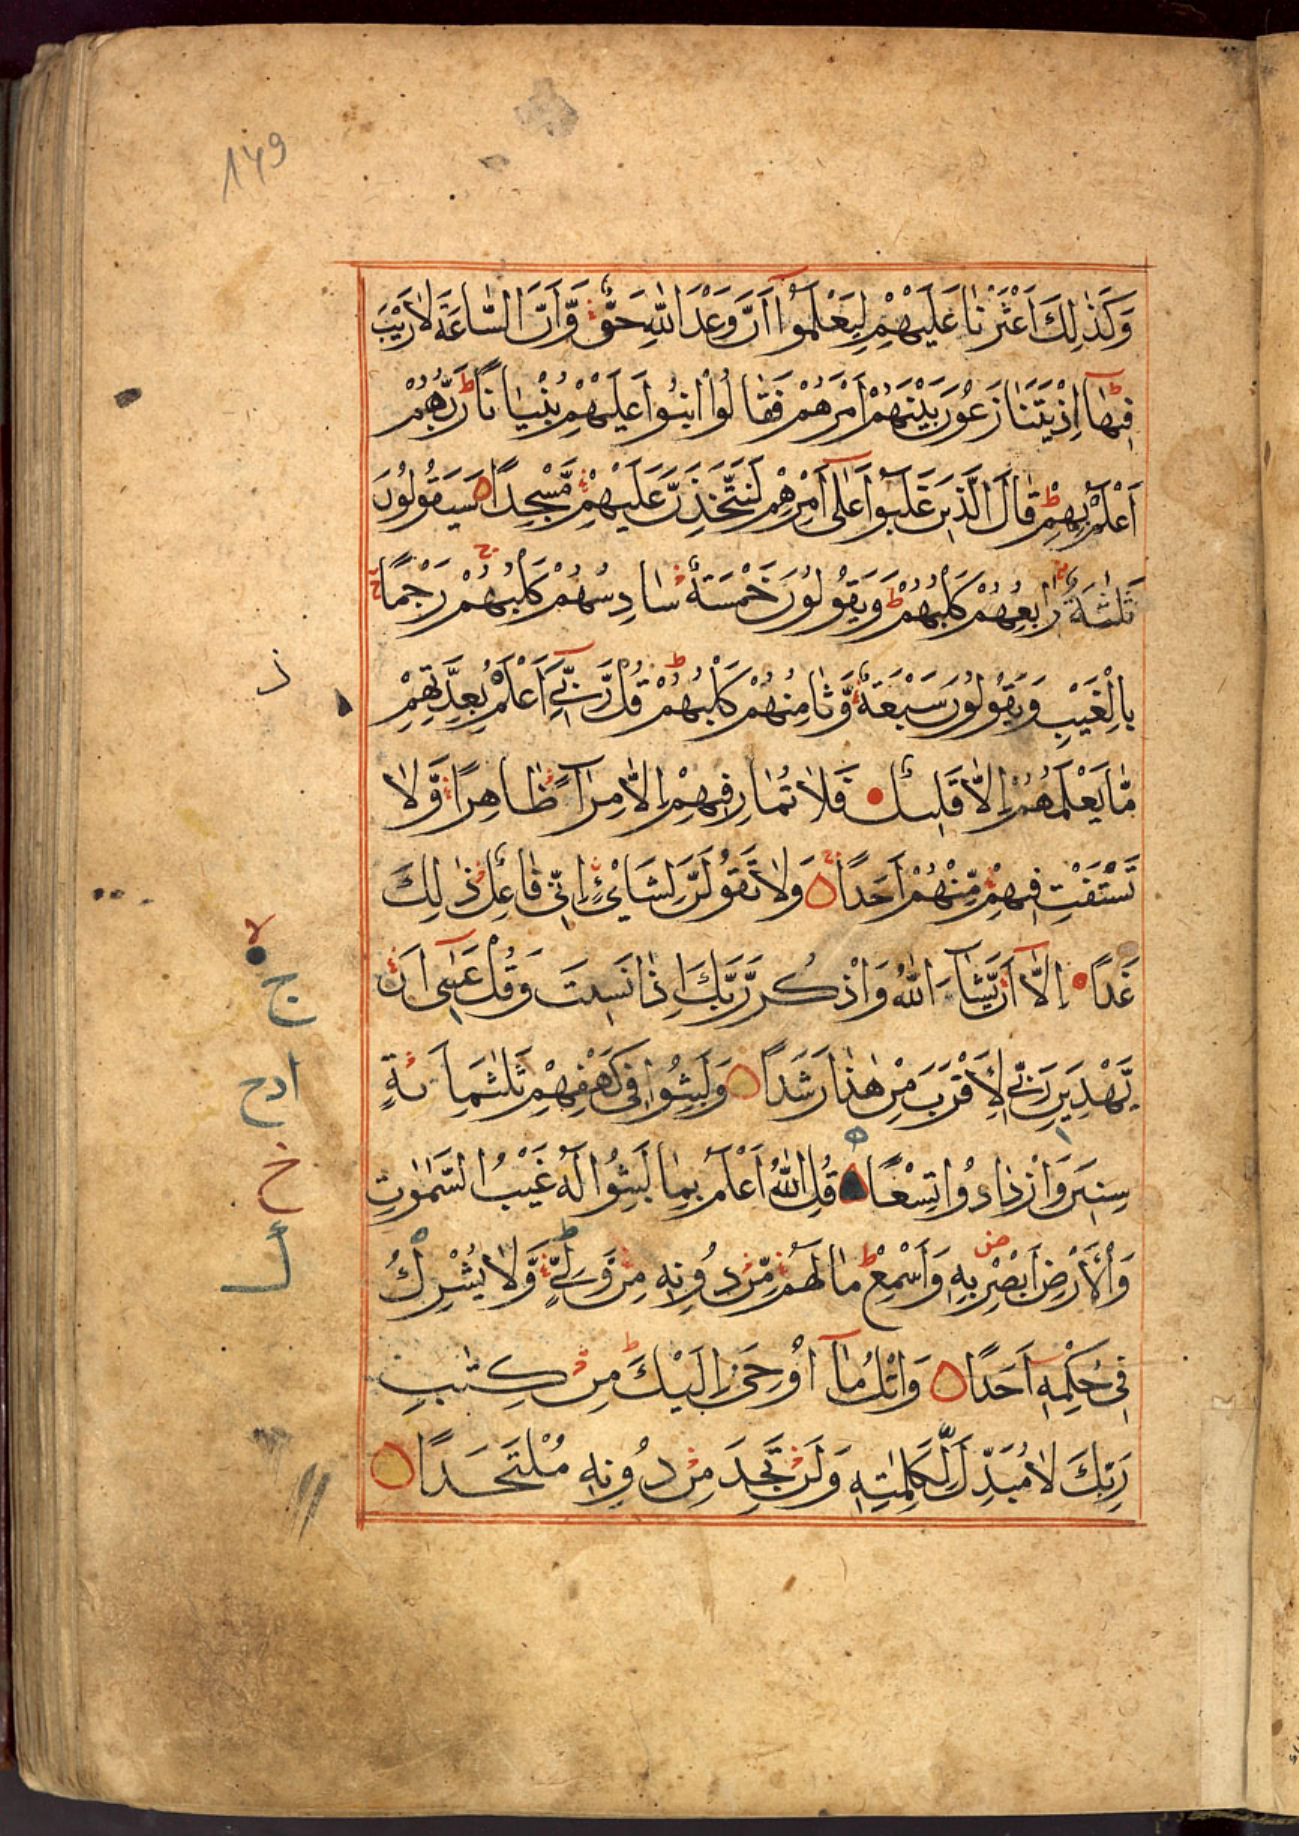 149
وَكَذٰلِكَ اَعْثَرْنَا عَلَيْهِمْ لِيَعْلَمُوٓا اَنَّ وَعْدَ اللّٰهِ حَقٌّ وَّاَنَّ السَّاعَةَ لَا رَيْبَ
فِيْهَا اِذْ يَتَنَازَعُوْنَ بَيْنَهُمْ اَمْرَهُمْ فَقَالُوا ابْنُوْا عَلَيْهِمْ بُنْيَانًا رَّبُّهُمْ
اَعْلَمُ بِهِمْ ط قَالَ الَّذِيْنَ غَلَبُوْا عَلٰٓى اَمْرِهِمْ لَنَتَّخِذَنَّ عَلَيْهِمْ مَّسْجِدًا سَيَقُوْلُوْنَ
ثَلٰثَةٌ رَّابِعُهُمْ كَلْبُهُمْ ط وَيَقُوْلُوْنَ خَمْسَةٌ سَادِسُهُمْ كَلْبُهُمْ رَجْمًا
بِالْغَيْبِ وَيَقُوْلُوْنَ سَبْعَةٌ وَّثَامِنُهُمْ كَلْبُهُمْ ط قُلْ رَّبِّيْٓ اَعْلَمُ بِعِدَّتِهِمْ
مَّا يَعْلَمُهُمْ اِلَّا قَلِيْلٌ فَلَا تُمَارِ فِيْهِمْ اِلَّا مِرَآءً ظَاهِرًا وَّلَا
تَسْتَفْتِ فِيْهِمْ مِّنْهُمْ اَحَدًا وَلَا تَقُوْلَنَّ لِشَايْءٍ اِنِّيْ فَاعِلٌ ذٰلِكَ
غَدًا اِلَّآ اَنْ يَّشَآءَ اللّٰهُ وَاذْكُرْ رَّبَّكَ اِذَا نَسِيْتَ وَقُلْ عَسٰٓى اَنْ
يَّهْدِيَنِ رَبِّيْ لِاَقْرَبَ مِنْ هٰذَا رَشَدًا وَلَبِثُوْا فِيْ كَهْفِهِمْ ثَلٰثَمِائَةٍ
سِنِيْنَ وَازْدَادُوْا تِسْعًا قُلِ اللّٰهُ اَعْلَمُ بِمَا لَبِثُوْا لَهٗ غَيْبُ السَّمٰوٰتِ
وَالْاَرْضِ اَبْصِرْ بِهٖ وَاَسْمِعْ ط مَا لَهُمْ مِّنْ دُوْنِهٖ مِنْ وَّلِيٍّ ط وَّلَا يُشْرِكُ
فِيْ حُكْمِهٖٓ اَحَدًا وَاتْلُ مَآ اُوْحِيَ اِلَيْكَ مِنْ كِتٰبِ
رَبِّكَ لَا مُبَدِّلَ لِكَلِمٰتِهٖ وَلَنْ تَجِدَ مِنْ دُوْنِهٖ مُلْتَحَدًا
ذ
لا
ج
ادح
خ